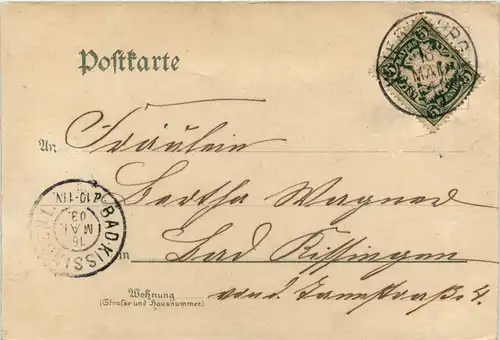 Postkarte
An
Fräulein
Bertha Wagner
in Bad Kissingen
Wohnung
(Strasse und Hausnummer)
v. d. Tannstraße 4.
BAD-KISSINGEN
16
MAI
03
10-11N
16
MAI
BAYERN
5